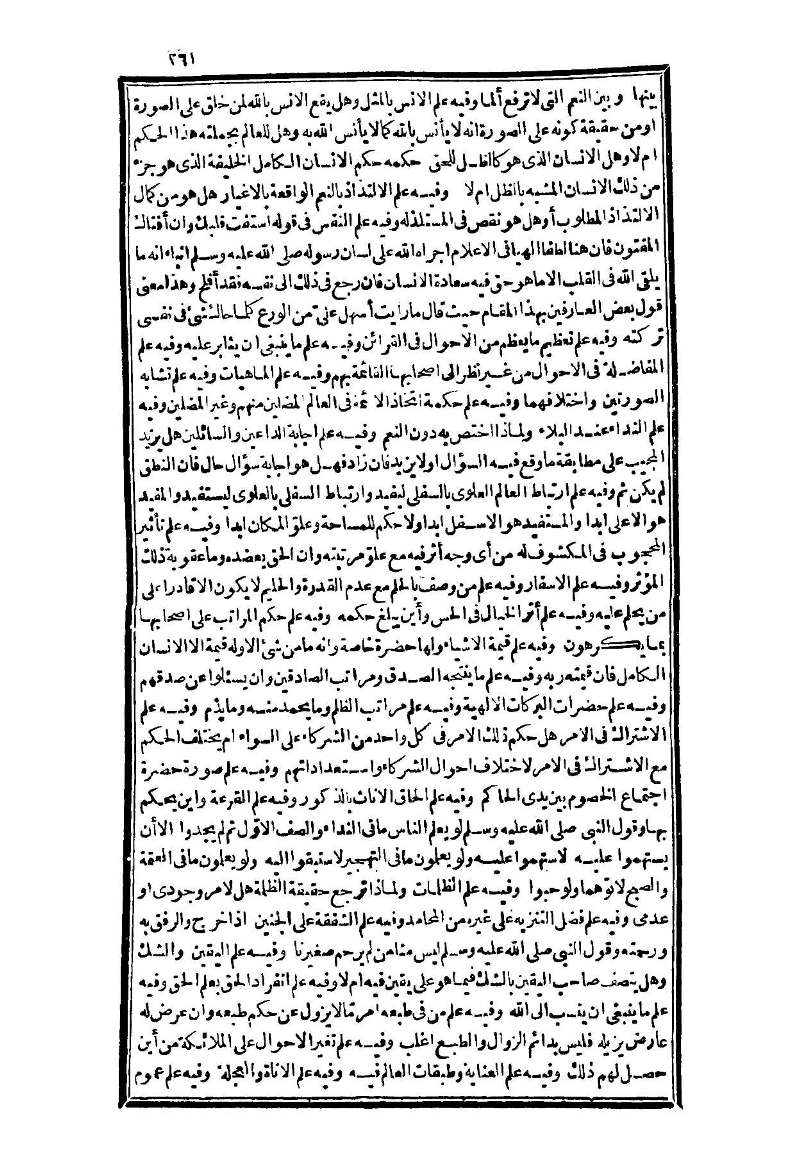 ٢٦١
بينها وبين النعم التى لا ترفع ألما وفيه علم الانس بالمثل وهل يقع الانس بالله لمن خلق على الصورة
اومن حقيقة كونه على الصورة انه لا يأنس بالله كما لا يأنس الله به وهل للعالم بجملته هذا الحكم
ام لا وهل الانسان الذى هو كالظل للحق حكمه حكم الانسان الكامل الخليفة الذى هو جزء
من ذلك الانسان المشبه بالظل ام لا وفيه علم الالتذاذ بالنعم الواقعة بالاغيار هل هو من كمال
الالتذاذ المطلوب أو هل هو نقص فى المستلذ له وفيه علم النفس فى قوله استفت قلبك وان أفتاك
المفتون فان هنا لطفا الهيا فى الاعلام اجراه الله على لسان رسوله صلى الله عليه وسلم انباء انه ما
يلقى الله فى القلب الا ما هو حق فيه سعادة الانسان فان رجع فى ذلك الى نفسه فقد أفلح وهذا معنى
قول بعض العارفين بهذا المقام حيث قال ما رايت أسهل على من الورع كلما حاك شئ فى نفسى
تركته وفيه علم تعظيم ما يعظم من الاحوال فى القرائن وفيه علم ما ينبغى ان يثابر عليه وفيه علم
المفاضلة فى الاحوال من غير نظر الى اصحابها القائمة بهم وفيه علم الماهيات وفيه علم تشابه
الصورتين واختلافهما وفيه علم حكمة اتخاذ الائمة فى العالم المضلين منهم وغير المضلين وفيه
علم النداء عند البلاء ولماذا اختص به دون النعم وفيه علم اجابة الداعين والسائلين هل يزيد
المجيب على مطابقة ما وقع فيه السؤال اولا يزيد فان زاد فهل هو اجابة سؤال حال فان النطق
لم يكن ثم وفيه علم ارتباط العالم العلوى بالسفلى ليفيد وارتباط السفلى بالعلوى ليستفيد والمفيد
هو الاعلى ابدا والمستفيد هو الاسفل ابدا ولا حكم للمساحة وعلو المكان ابدا وفيه علم تأثير
المحجوب فى المكشوف له من أى وجه أثر فيه مع علو مرتبته وان الحق بعضده وما عقوبة ذلك
المؤثر وفيه علم الاسفار وفيه علم من وصف بالحلم مع عدم القدرة والحليم لا يكون الا قادرا على
من يحلم عليه وفيه علم أثر الخيال فى الحس وأين يبلغ حكمه وفيه علم حكم المراتب على اصحابها
بما يكرهون وفيه علم قيمة الاشياء ولها حضرة خاصة وانه ما من شئ الا وله قيمة الا الانسان
الكامل فان قيمته ربه وفيه علم ما ينتجه الصدق ومراتب الصادقين وان يسئلوا عن صدقهم
وفيه علم حضرات البركات الالهية وفيه علم مراتب الظلم وما يحمد منه وما يذم وفيه علم
الاشتراك فى الامر هل حكم ذلك الامر فى كل واحد من الشركاء على السواء ام يختلف الحكم
مع الاشتراك فى الامر لاختلاف احوال الشركاء واستعداداتهم وفيه علم صورة حضرة
اجتماع الخصوم بين يدى الحاكم وفيه علم الحاق الاناث بالذكور وفيه علم القرعة واين يحكم
بها وقول النبى صلى الله عليه وسلم لو يعلم الناس ما فى النداء والصف الاول ثم لم يجدوا الا أن
يستهموا عليه لاستهموا عليه ولو يعلمون ما فى التهجير لاستبقوا اليه ولو يعلمون ما فى العتمة
والصبح لاتوهما ولو حبوا وفيه علم الظلمات ولماذا ترجع حقيقة الظلمة هل لامر وجودى او
عدمى وفيه علم فضل التنزيه على غيره من المحامد وفيه علم الشفقة على الجنين اذا خرج والرفق به
ورحمته وقول النبى صلى الله عليه وسلم ليس منا من لم يرحم صغيرنا وفيه علم اليقين والشك
وهل يتصف صاحب اليقين بالشك فيما هو على يقين فيه ام لا وفيه علم انفراد الحق بعلم الحق وفيه
علم ما ينبغى ان ينسب الى الله وفيه علم من فى طبعه امر ما لا يزول عن حكم طبعه وان عرض له
عارض يزيله فليس بدائم الزوال والطبع اغلب وفيه علم تغير الاحوال على الملائكة من أين
حصل لهم ذلك وفيه علم العناية وطبقات العالم فيه وفيه علم الاناة والعجلة وفيه علم عموم